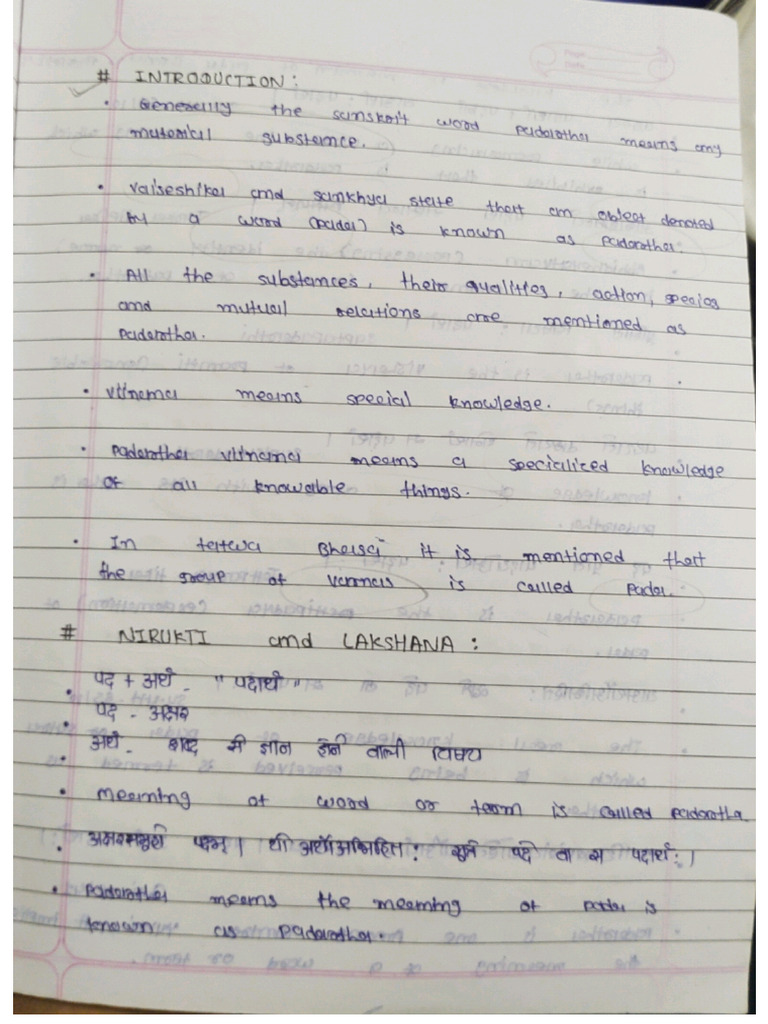 # INTRODUCTION:
• Generally the sanskrit word Padarotha means any
material substance.
• Vaiseshika and Sankhya state that an object denoted
by a word (Pada) is known as Padarotha.
• All the substances, their qualities, action, species
and mutual relations are mentioned as
Padarotha.
• Vijnana means special knowledge.
• Padarotha Vijnana means a specialized knowledge
of all knowable things.
• In tatwa Bhasa it is mentioned that
the group of varnas is called Pada.
# NIRUKTI and LAKSHANA:
• पद + अर्थ - "पदार्थ"
• पद - अक्षर
• अर्थ - शब्द से ज्ञान होने वाली विषय
• meaning of word or term is called Padarotha
• अक्षरसमुहो पदम् । यो अर्थोअभिहितः सूत्रे पदे वा स पदार्थः ।
• Padarotha means the meaning of pada is
known as Padarotha.